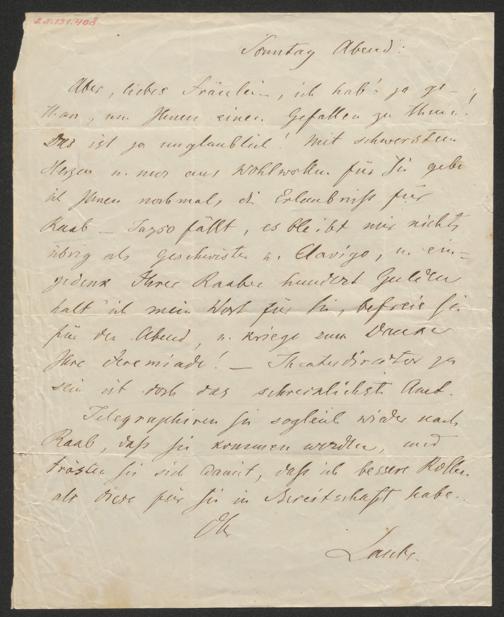 Sonntag Abend:
Aber, liebes Fräulein, ich hab's ja ge-
than, um Ihnen einen Gefallen zu thun!
Das ist ja unglaublich! Mit schwerstem
Herzen u. nur aus Wohlwollen für Sie gebe
ich Ihnen nochmals die Erlaubniß für
Raab – Tasso fällt, es bleibt mir nichts
übrig als Geschwister u. Clavigo, u. ein-
gedenk Ihrer Raaber hundert Gulden
halt' ich mein Wort für Sie, befreie Sie
für den Abend, u. kriege zum Danke
Ihre Jeremiade! – Theaterdirector zu
sein ist doch das schrecklichste Amt.
Telegraphiren Sie sogleich wieder nach
Raab, daß Sie kommen werden, und
trösten Sie sich damit, daß ich bessere Rollen
als diese für Sie in Bereitschaft habe.
Laube